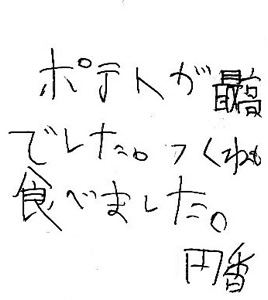 ポテトが最高
でした。つくねも
食べました。
円香